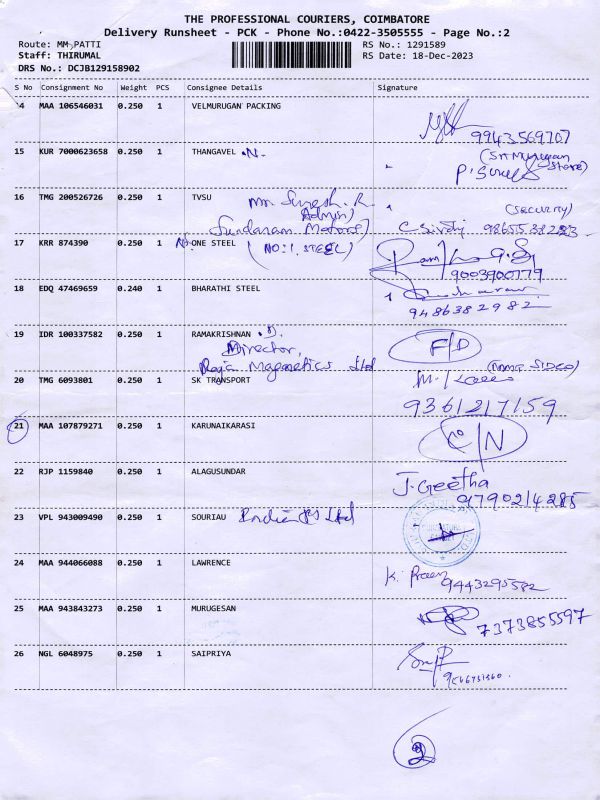 THE PROFESSIONAL COURIERS, COIMBATORE
Delivery Runsheet - PCK - Phone No.:0422-3505555 - Page No.:2
Route: MM PATTI RS No.: 1291589
Staff: THIRUMAL RS Date: 18-Dec-2023
DRS No.: DCJB129158902
S No Consignment No Weight PCS Consignee Details Signature
14 MAA 106546031 0.250 1 VELMURUGAN PACKING
9943569707
15 KUR 7000623658 0.250 1 THANGAVEL .N. (Sri Murugan
Store)
16 TMG 200526726 0.250 1 TVSU Mr. Suresh. R (SECURITY)
Admin)
Sundaram Motors) 9865538283
17 KRR 874390 0.250 1 No ONE STEEL (NO:1. STEEL)
9003900779
18 EDQ 47469659 0.240 1 BHARATHI STEEL
9486382982
19 IDR 100337582 0.250 1 RAMAKRISHNAN F/D
Director,
Raja Magnetics Ltd
20 TMG 6093801 0.250 1 SK TRANSPORT
9361217159
21 MAA 107879271 0.250 1 KARUNAIKARASI C/N
22 RJP 1159840 0.250 1 ALAGUSUNDAR J. Geetha
9790214285
23 VPL 943009490 0.250 1 SOURIAU India Pvt Ltd
24 MAA 944066088 0.250 1 LAWRENCE K.
9443295582
25 MAA 943843273 0.250 1 MURUGESAN
7373855597
26 NGL 6048975 0.250 1 SAIPRIYA
2